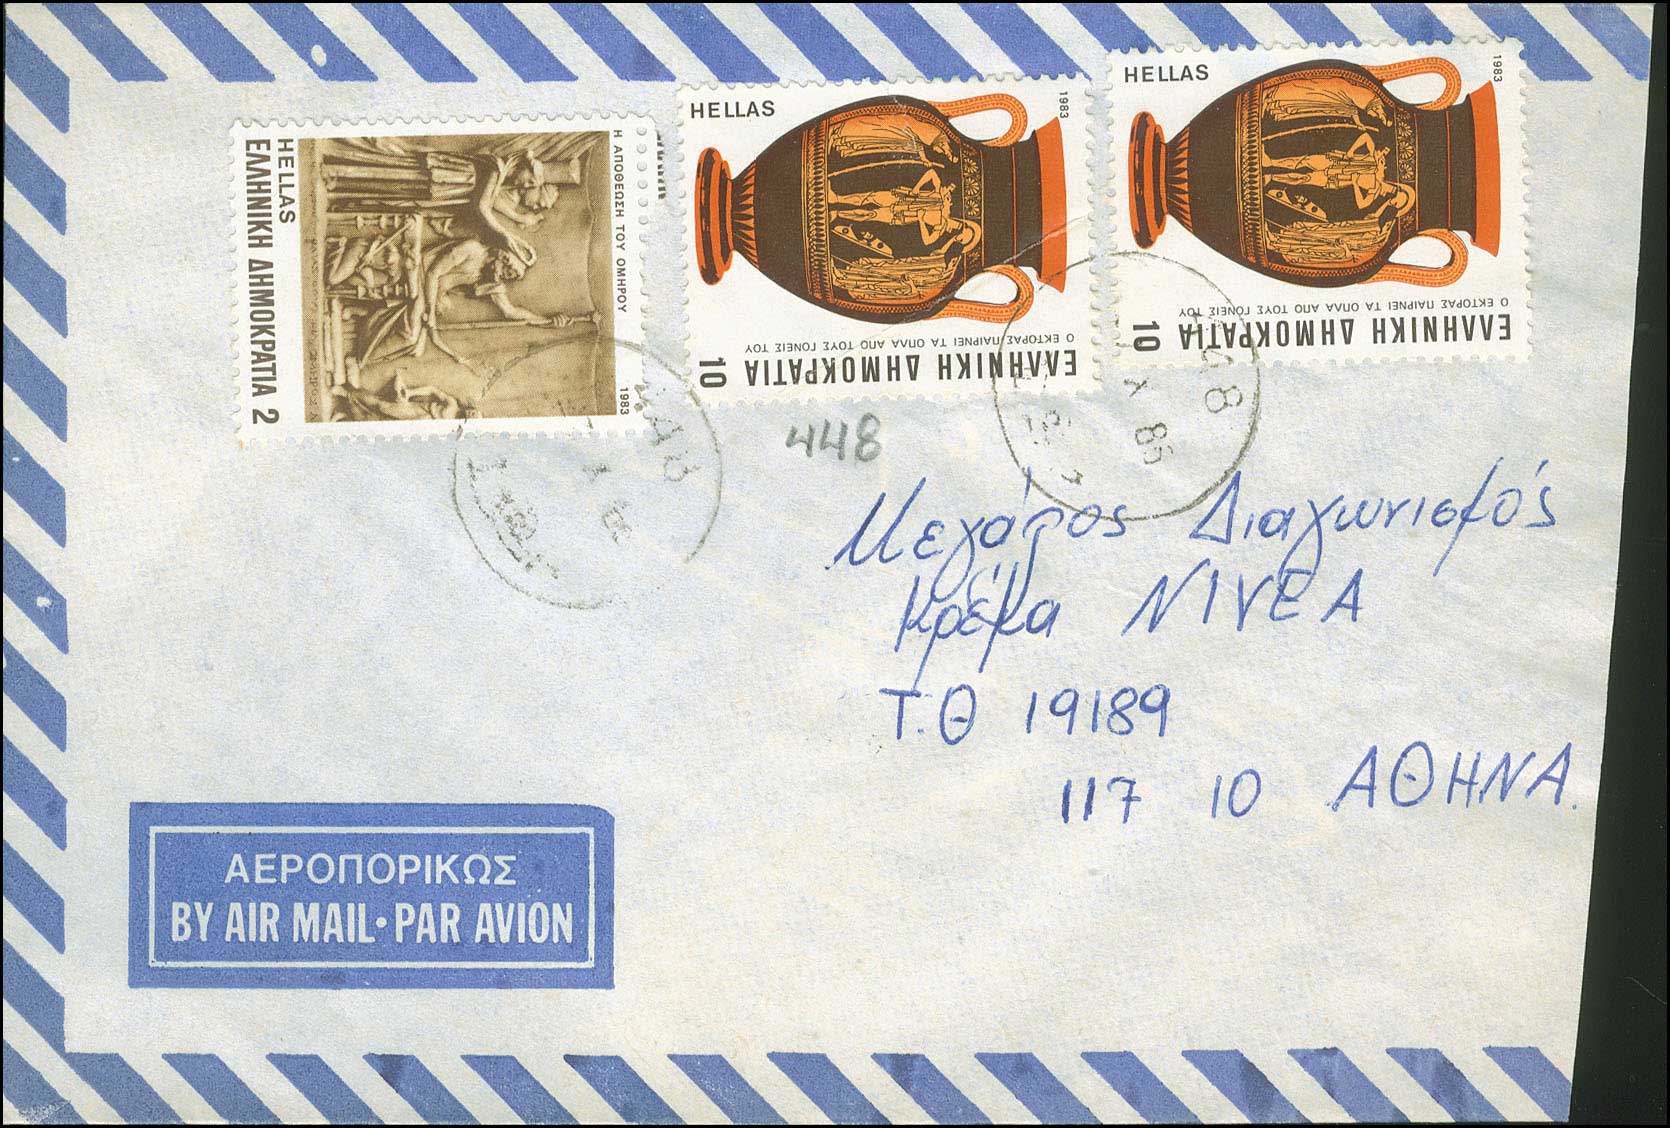 HELLAS
ΕΛΛΗΝΙΚΗ ΔΗΜΟΚΡΑΤΙΑ 2
Η ΑΠΟΘΕΩΣΗ ΤΟΥ ΟΜΗΡΟΥ
1983
HELLAS
1983
Ο ΕΚΤΟΡΑΣ ΠΑΙΡΝΕΙ ΤΑ ΟΠΛΑ ΑΠΟ ΤΟΥΣ ΓΟΝΕΙΣ ΤΟΥ
ΕΛΛΗΝΙΚΗ ΔΗΜΟΚΡΑΤΙΑ 10
HELLAS
1983
Ο ΕΚΤΟΡΑΣ ΠΑΙΡΝΕΙ ΤΑ ΟΠΛΑ ΑΠΟ ΤΟΥΣ ΓΟΝΕΙΣ ΤΟΥ
ΕΛΛΗΝΙΚΗ ΔΗΜΟΚΡΑΤΙΑ 10
448
X 85
448
Διαγωνισμός
Κρέμα NIVEA
Τ.Θ 19189
117 10 ΑΘΗΝΑ.
ΑΕΡΟΠΟΡΙΚΩΣ
BY AIR MAIL·PAR AVION